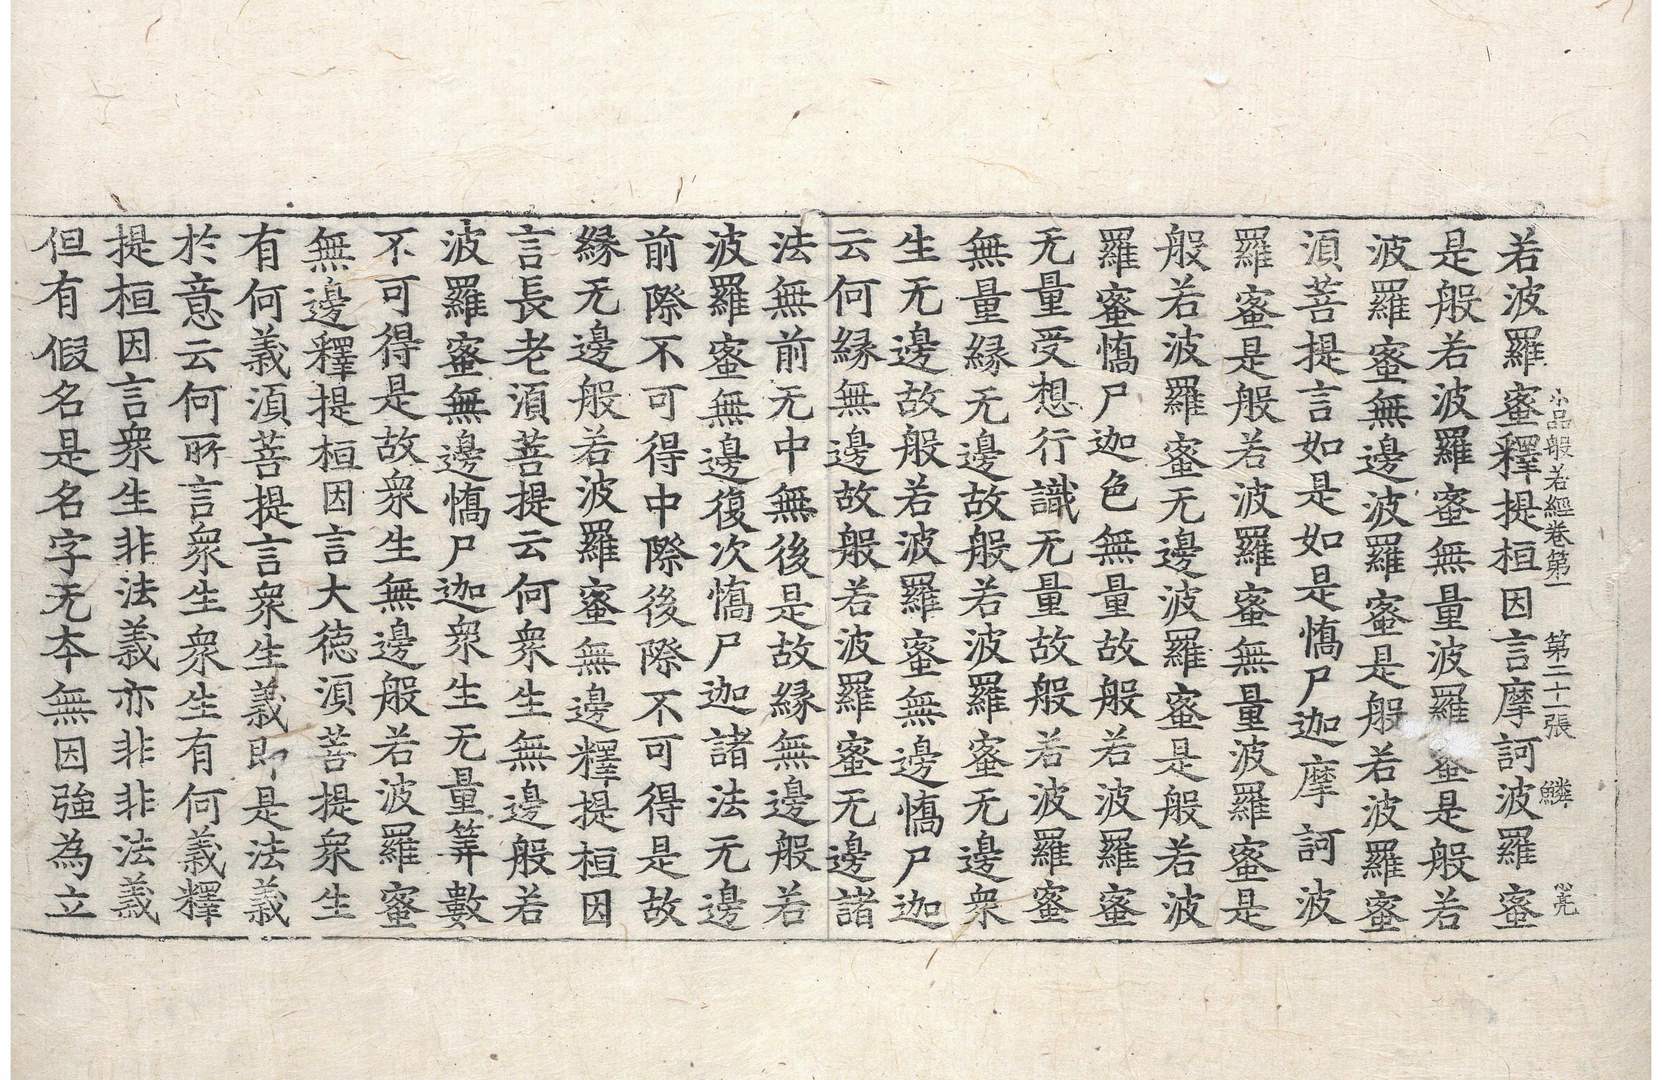 小品般若經卷第一　第二十一張　鱗　心亮
若波羅蜜釋提桓因言摩訶波羅蜜
是般若波羅蜜無量波羅蜜是般若
波羅蜜無邊波羅蜜是般若波羅蜜
湏菩提言如是如是憍尸迦摩訶波
羅蜜是般若波羅蜜無量波羅蜜是
般若波羅蜜无邊波羅蜜是般若波
羅蜜憍尸迦色無量故般若波羅蜜
无量受想行識无量故般若波羅蜜
無量縁无邊故般若波羅蜜无邊衆
生无邊故般若波羅蜜無邊憍尸迦
云何縁無邊故般若波羅蜜无邊諸
法無前无中無後是故縁無邊般若
波羅蜜無邊復次憍尸迦諸法无邊
前際不可得中際後際不可得是故
縁无邊般若波羅蜜無邊釋提桓因
言長老湏菩提云何衆生無邊般若
波羅蜜無邊憍尸迦衆生无量筭數
不可得是故衆生無邊般若波羅蜜
無邊釋提桓因言大徳湏菩提衆生
有何義湏菩提言衆生義即是法義
於意云何所言衆生衆生有何義釋
提桓因言衆生非法義亦非非法義
但有假名是名字无夲無因強為立